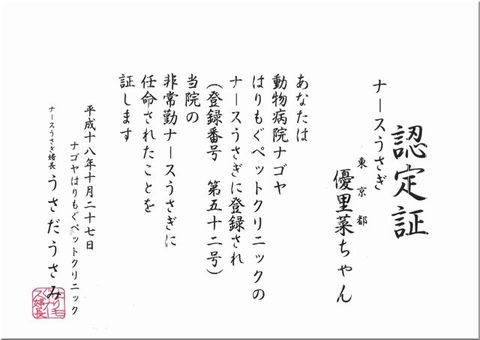 認定証
ナースうさぎ
東京都
優里菜ちゃん
あなたは
動物病院ナゴヤ
はりもぐペットクリニックの
ナースうさぎに登録され
(登録番号 第五十二号)
当院の
非常勤ナースうさぎに
任命されたことを
証します
平成十八年十月二十七日
ナゴヤはりもぐペットクリニック
ナースうさぎ婦長
うさだうさみ